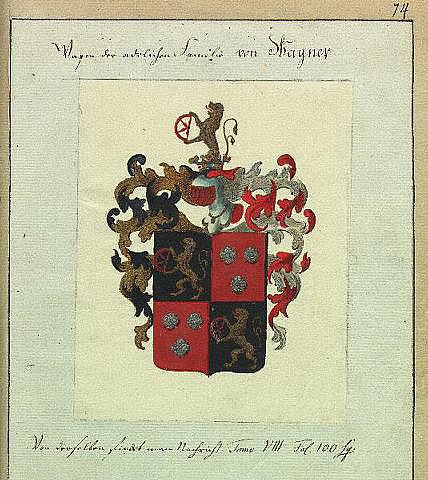 74
Wapen der adelichen Familie von Wagner
Von derselben findet man Nachricht Tomo VIII Fol. 100 sq.